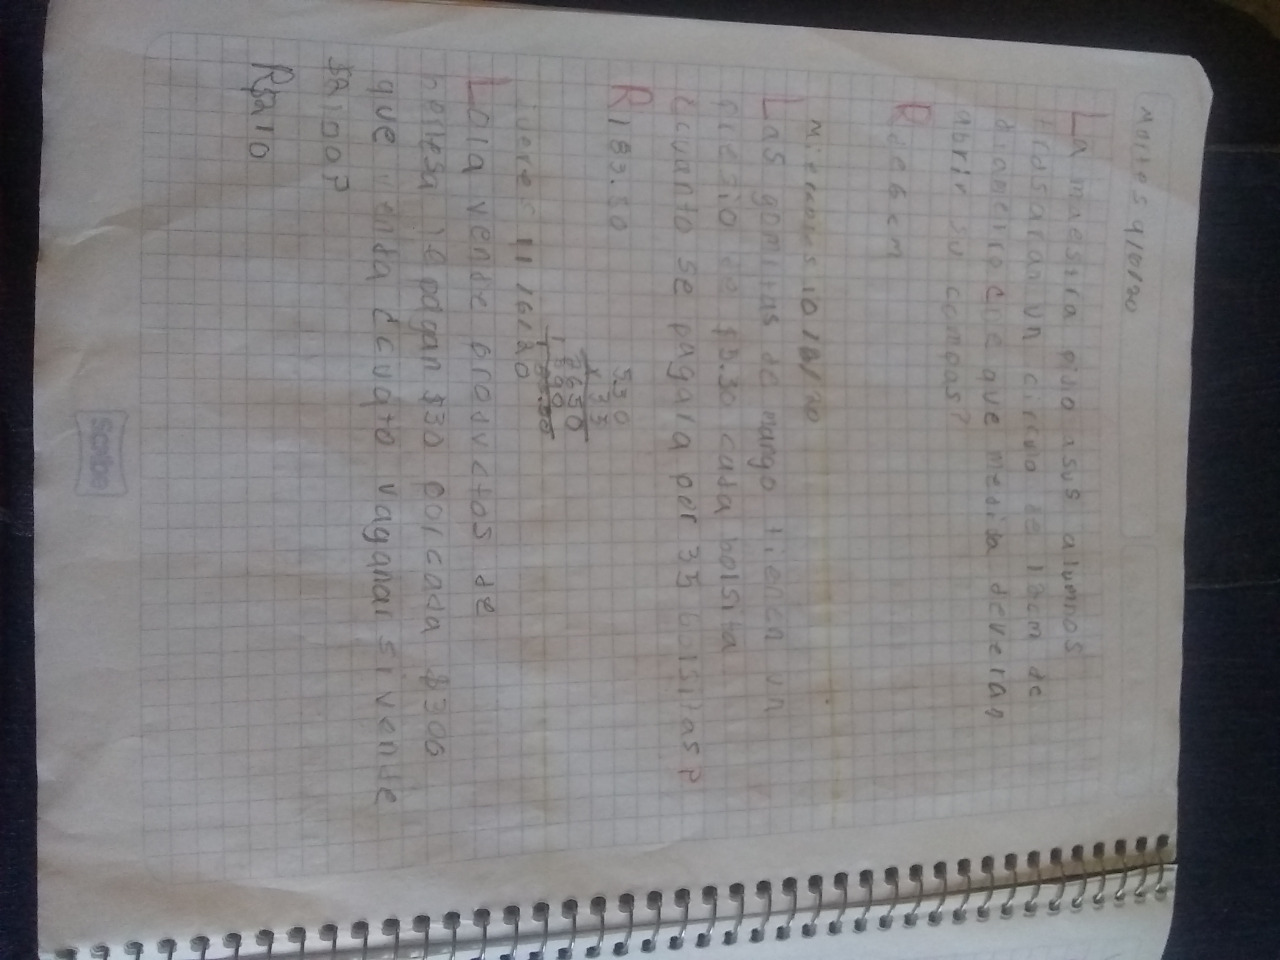 Martes 9/6/20
La maestra pidio asus alumnos
trasaran un circulo de 12cm de
diametro d e que medida deveran
abrir su compas?
R de 6 cm
Miercoles 10/6/20
Las gomitas de mango tienen un
presio de $5.30 cada bolsita
¿cuanto se pagara por 35 bolsitas?
R 183.50
5.30
x 35
2650
1590
jueves 11/6/20
Lola vende productos de
velleza le pagan $30 por cada $300
que venda ¿cuato vaganar si vende
$2100?
R $210
Scribe